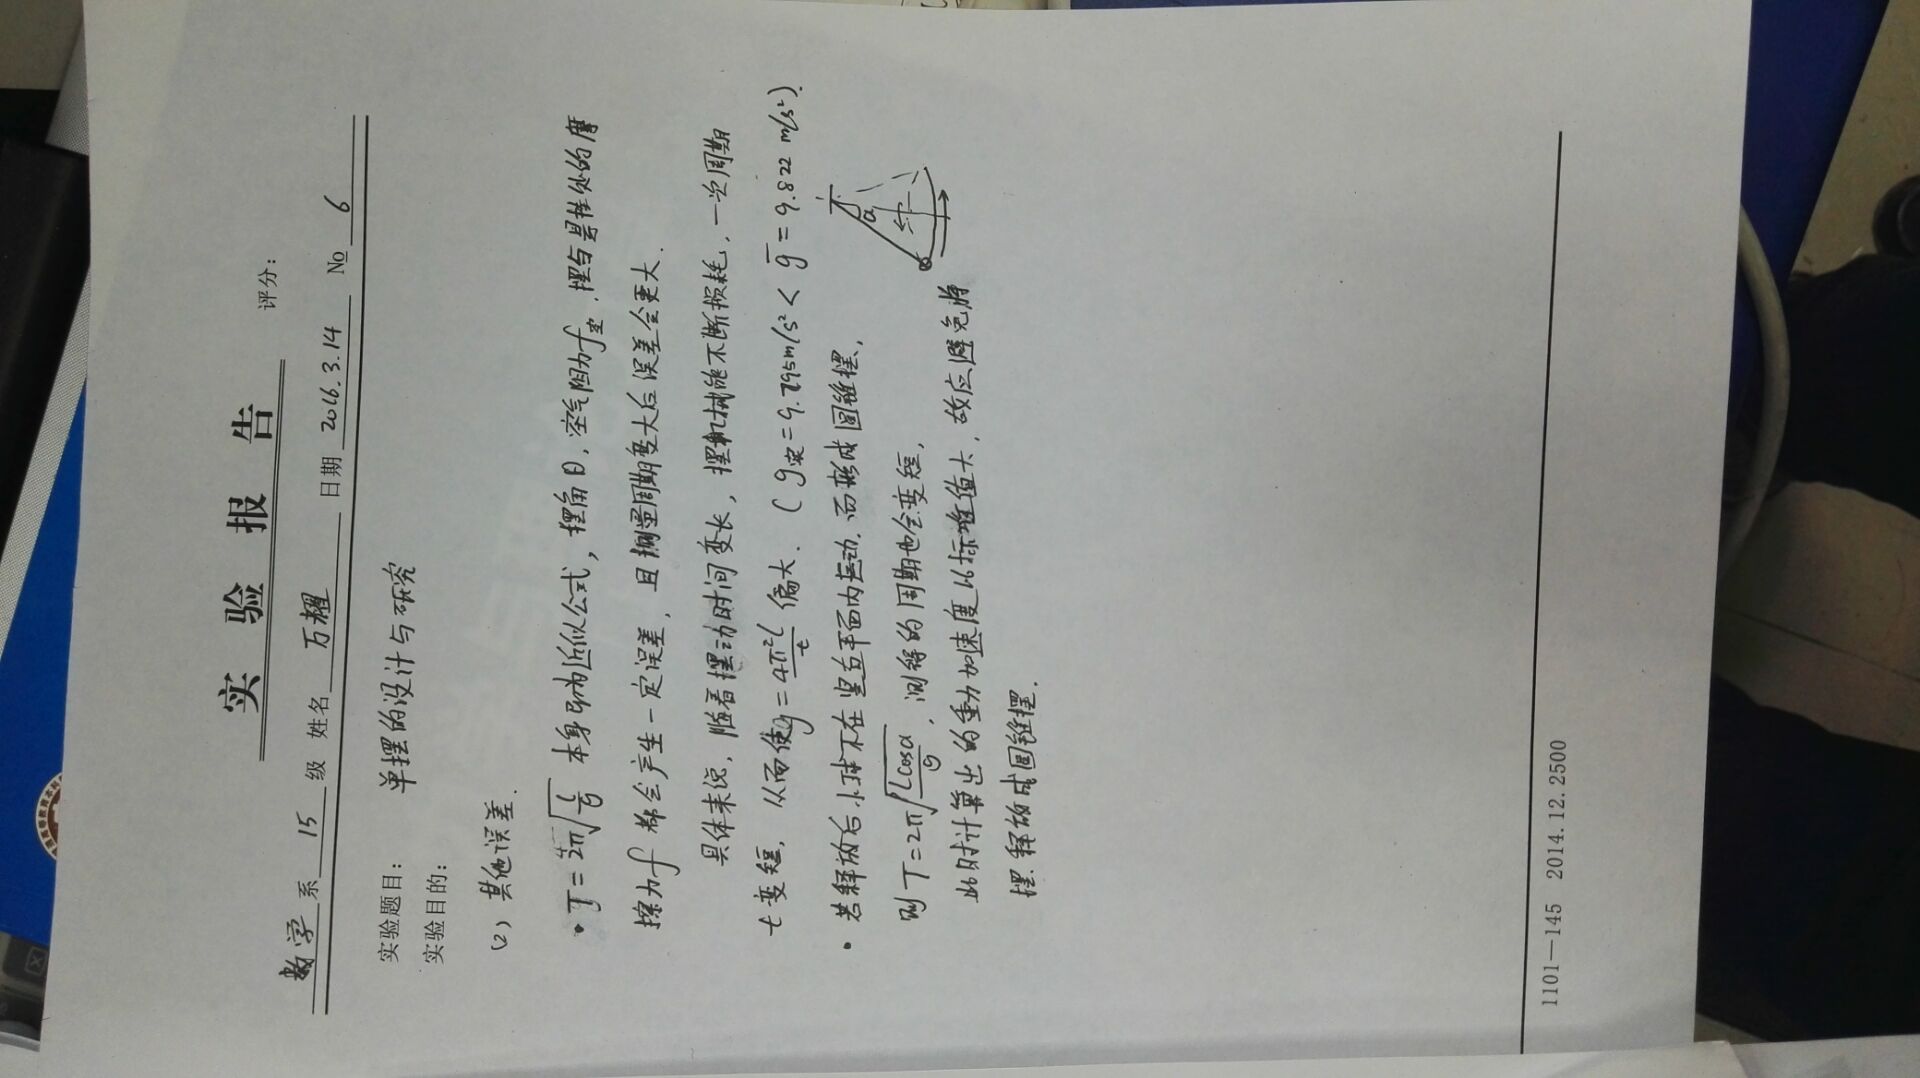 实 验 报 告
评分:
数学 系 15 级 姓名 万耀 日期 2016.3.14 No 6
实验题目: 单摆的设计与研究
实验目的:
(2) 其他误差.
• T=2π√(l/g) 本身即为近似公式, 摆角θ, 空气阻力f空, 摆与悬挂处的摩
擦力f 都会产生一定误差, 且测量周期变大后误差会更大.
具体来说, 随着摆动时间变长, 摆机械能不断损耗, 一定周期
t变短, 从而使g=4π²l/t 偏大. (g实=9.795m/s²<g̅=9.822 m/s²).
• 若释放后小球不在竖直平面内摆动, 而变成圆锥摆,
α
则T=2π√(lcosα/g), 测得的周期也会变短,
此时计算出的重力加速度比标准值大, 故应避免将
摆释放成圆锥摆.
1101—145 2014.12.2500